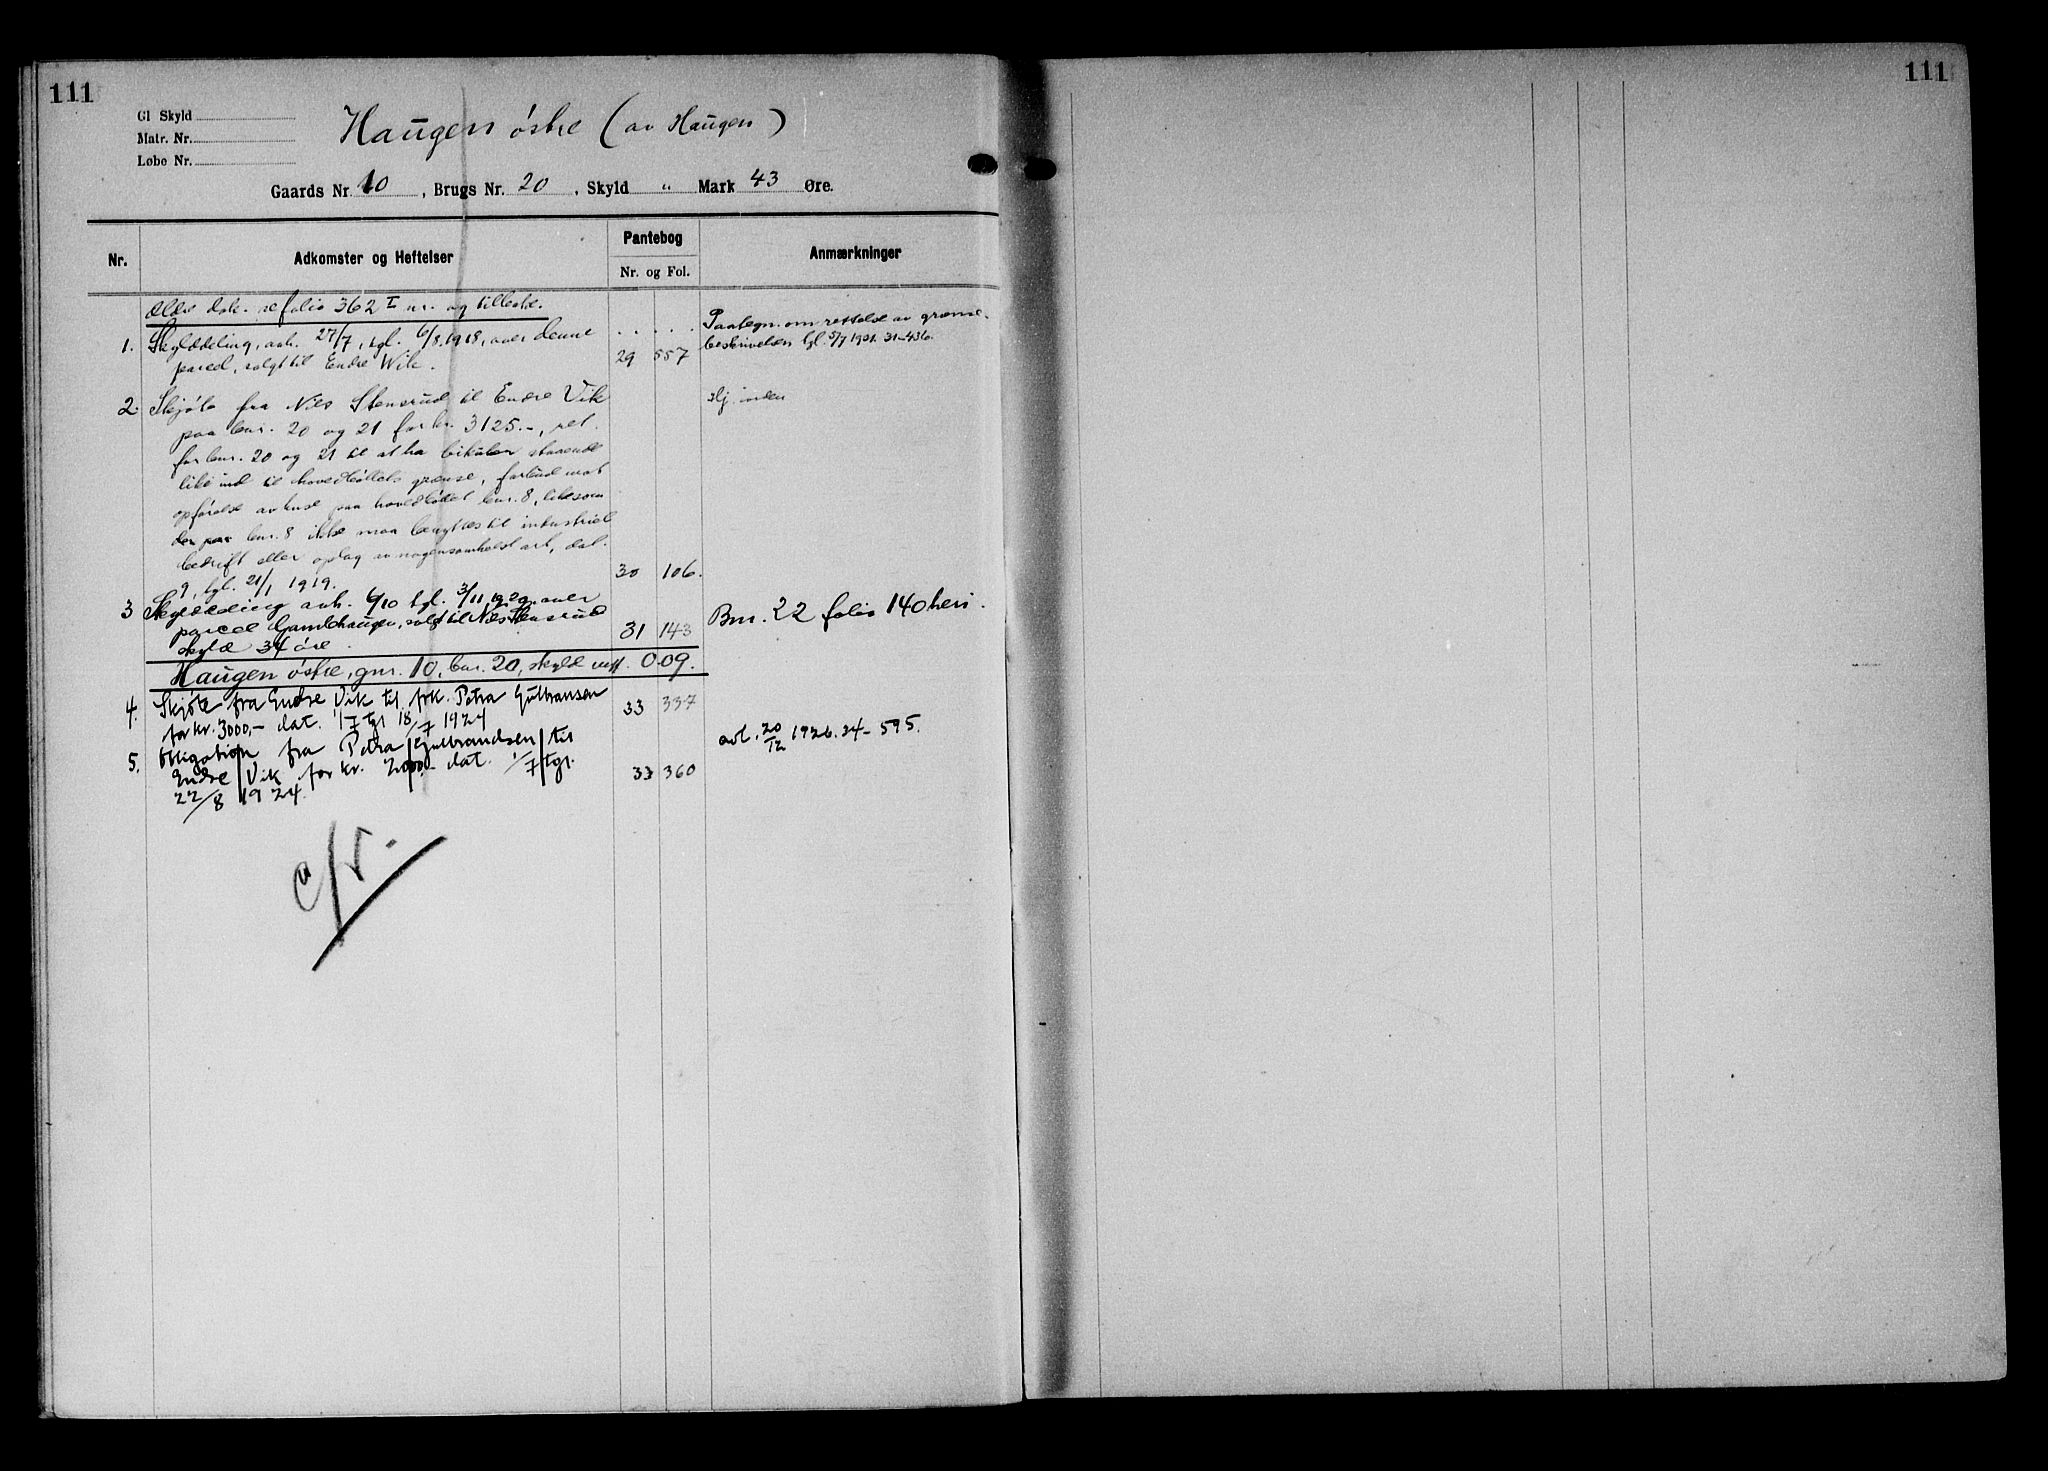 111
111
Gl Skyld
Matr. Nr.
Løbe Nr.
Haugen østre (av Haugen)
Gaards Nr. 10, Brugs Nr. 20, Skyld " Mark 43 Øre.
Nr. Adkomster og Heftelser Pantebog Anmærkninger
Nr. og Fol.
Ældre dok. se folio 362 I nr. og tilbake.
1. Skylddeling, avh. 27/7, tgl. 6/8 1918, over denne
parcel, solgt til Endre Wik. 29 557
Paategn. om rettelse av grænse-
beskrivelsen tgl. 5/7 1921. 31-436.
2. Skjøte fra Nils Stensrud til Endre Vik
paa bnr. 20 og 21 for kr. 3125.-, ret
for bnr. 20 og 21 til at ha bikuber staaende
like ind til hovedbølets grænse, forbud mot
opførelse av huse paa hovedbølet bnr. 8, likesom
der paa bnr. 8 ikke maa benyttes til industriel
bedrift eller oplag av nogensomhelst art, dat.
9, tgl. 21/1 1919. 30 106.
3 Skylddeling avh. 6/10 tgl. 3/11 1920 over
parcel Gamlehaugen, solgt til Nils Stensrud
skyld 34 øre. 31 143
Bnr. 22 folio 140 heri.
Haugen østre, gnr. 10, bnr. 20, skyld 0.09.
4. Skjøte fra Endre Vik til frk. Petra Gulbransen
for kr. 3000,- dat. 1/7 tgl 18/7 1924 33 337
5. Obligation fra Petra Gulbrandsen til
Endre Vik for kr. 2000,- dat. 1/7 tgl.
22/8 1924. 33 360
avl. 20/12 1926. 34-595.